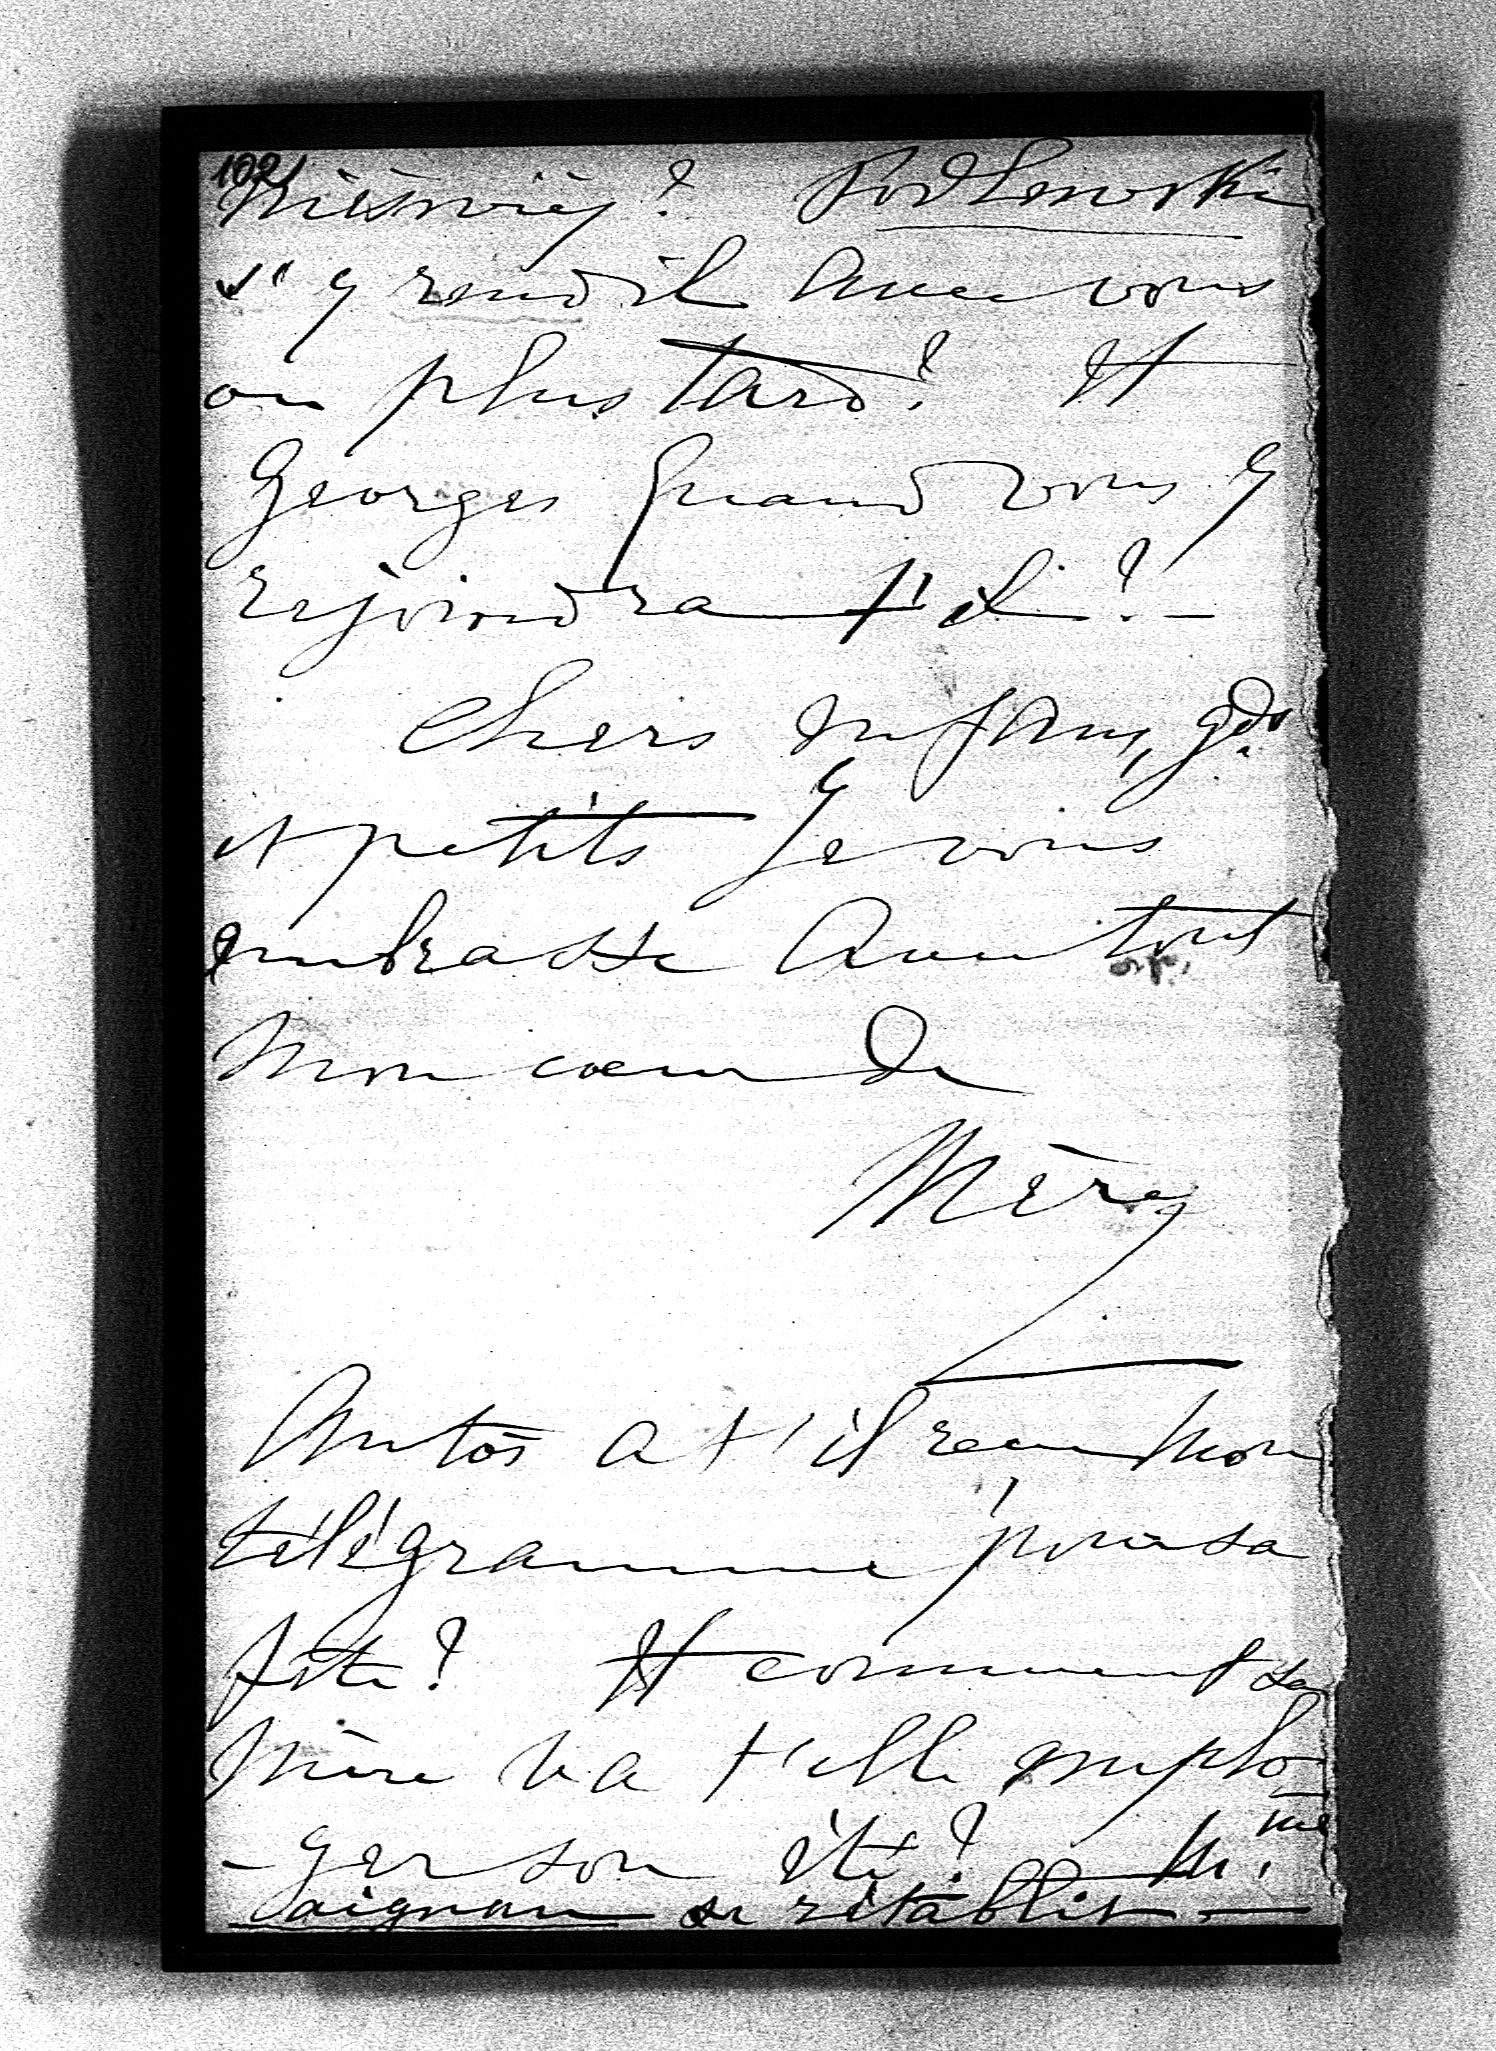 102
Nieświéz? Podlewski
s'y rend il avec vous
ou plus tard? Et
Georges quand vous y
rejoindra t'il?—
Chers enfans, gds
et petits je vous
embrasse avec tout
mon cœur de
Mère
Antos a t'il recu mon
télégramme pour sa
fête? Et comment sa
mère va t'elle emplo-
-yer son été? — Mme
Daignan se rétablit. —